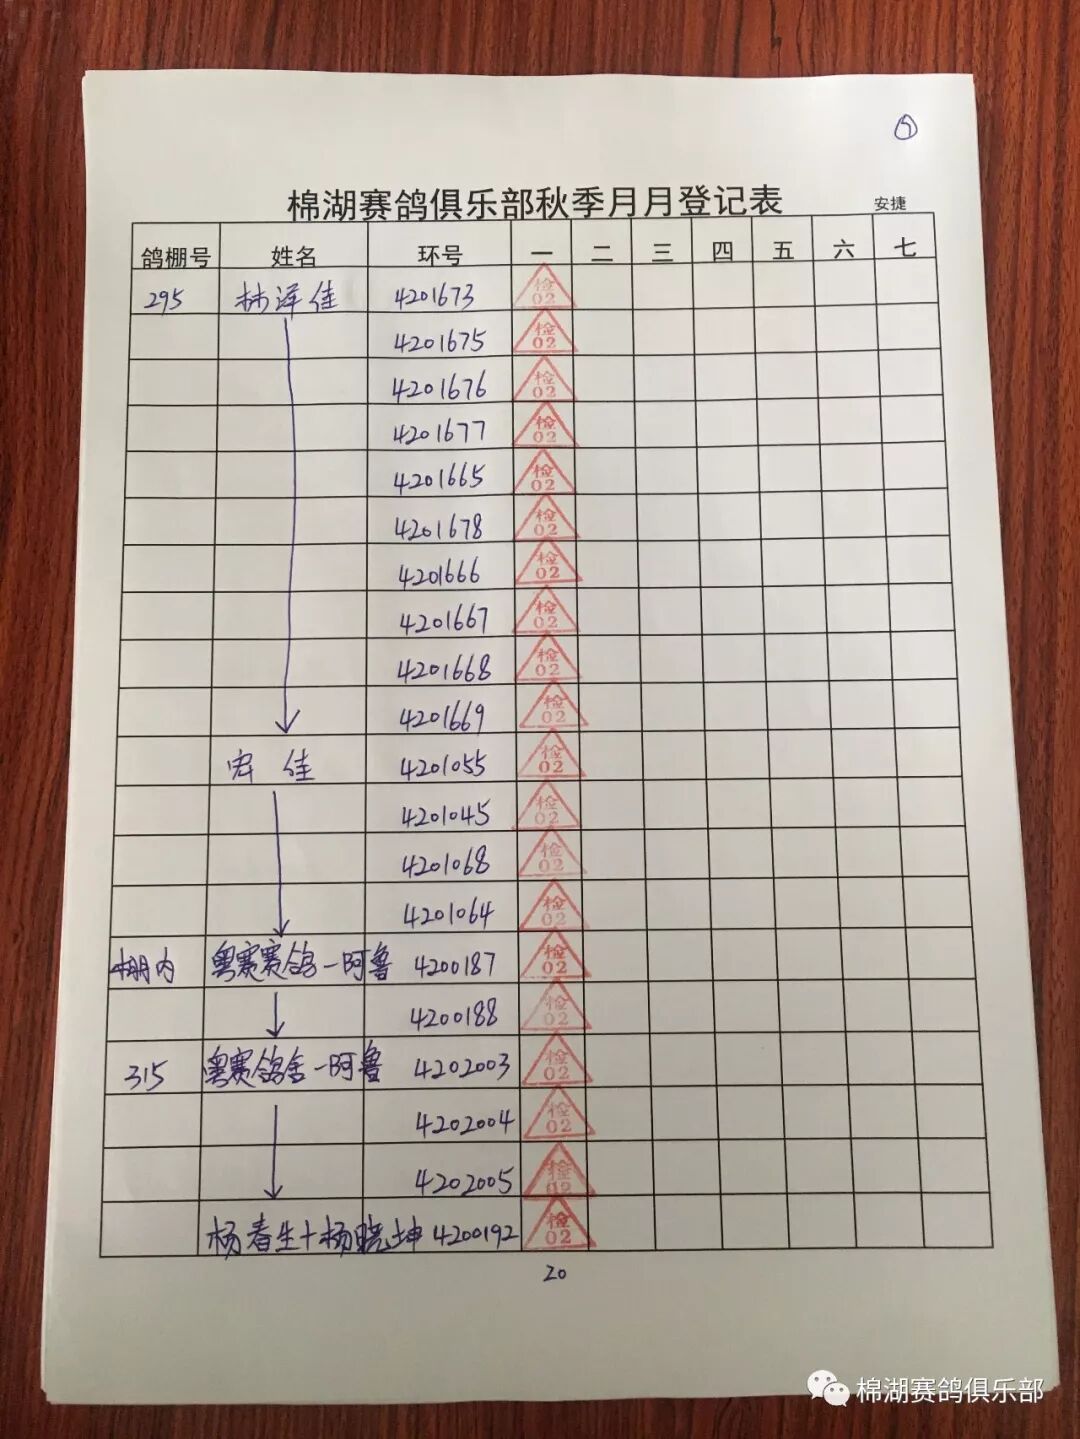 ⑤
棉湖赛鸽俱乐部秋季月月登记表 安捷
鸽棚号 姓名 环号 一 二 三 四 五 六 七
295 林泽佳 4201673 检02
4201675 检02
4201676 检02
4201677 检02
4201665 检02
4201678 检02
4201666 检02
4201667 检02
4201668 检02
4201669 检02
宏佳 4201055 检02
4201045 检02
4201068 检02
4201064 检02
棚内 粤赛赛鸽一阿鲁 4200187 检02
4200188 检02
315 粤赛鸽舍一阿鲁 4202003 检02
4202004 检02
4202005 检02
杨春生+杨晓坤 4200192 检02
20
棉湖赛鸽俱乐部